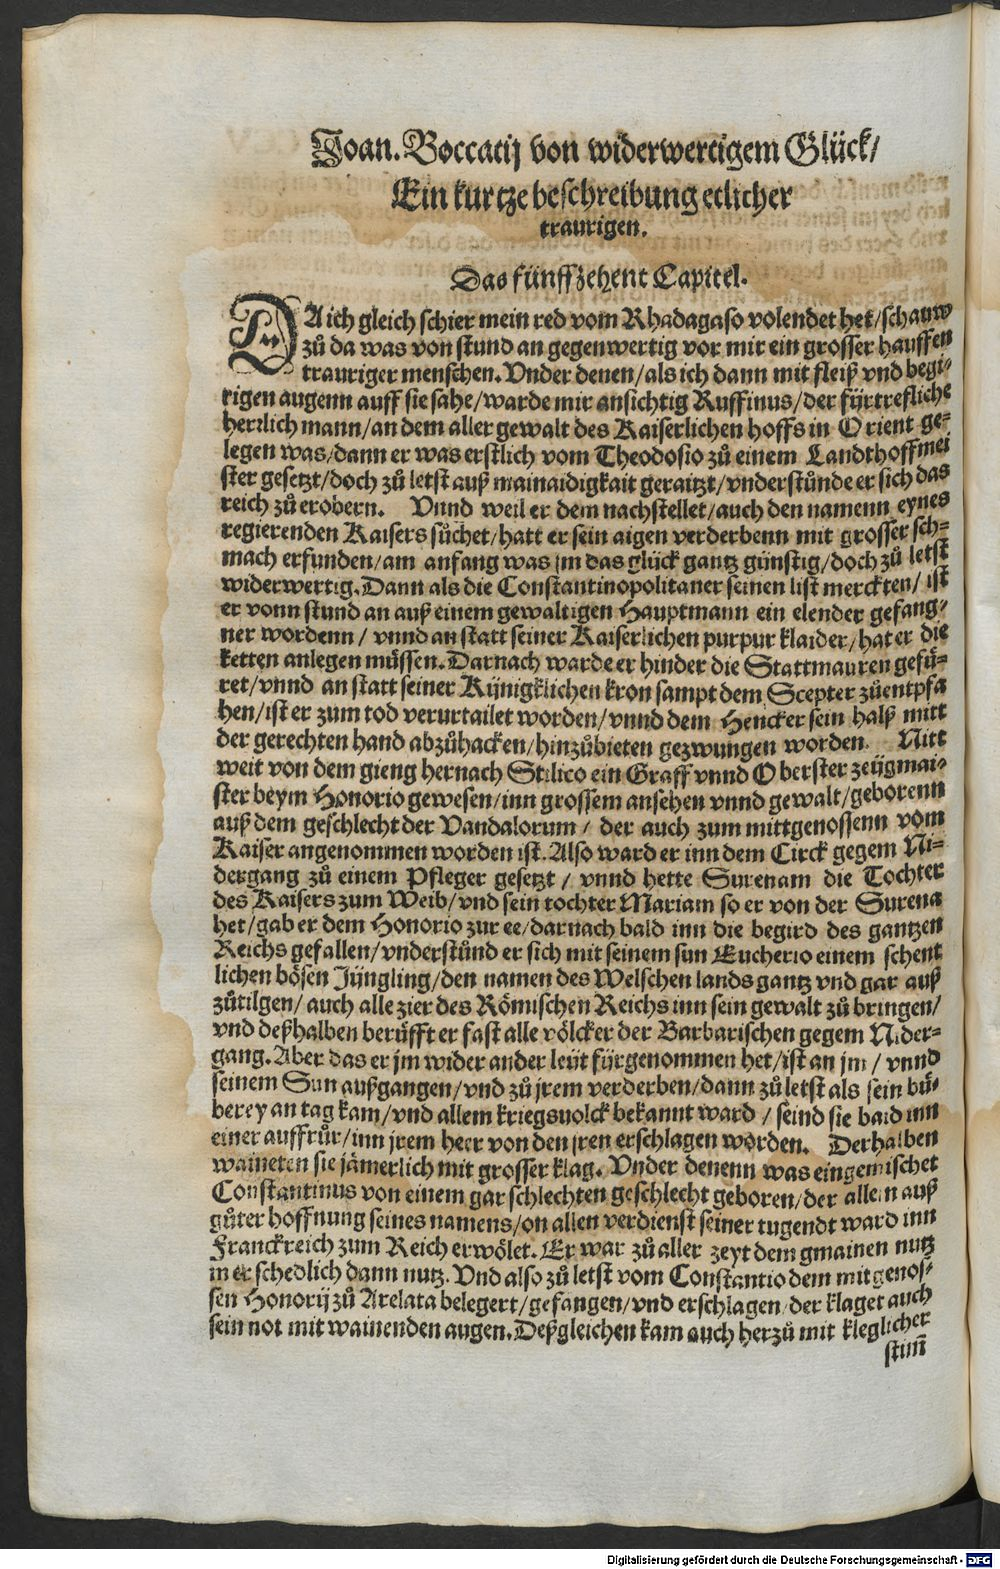 Joan. Boccatij von widerwertigem Glück/
Ein kurtze beschreibung etlicher
traurigen.
Das fünffzehent Capitel.
DA ich gleich schier mein red vom Rhadagaso volendet het/ schauw
zů da was von stund an gegenwertig vor mir ein grosser hauffen
trauriger menschen. Vnder denen/ als ich dann mit fleiß vnd begi-
rigen augenn auff sie sahe/ warde mir ansichtig Ruffinus/ der fürtrefliche
herrlich mann/ an dem aller gewalt des Kaiserlichen hoffs in Orient ge-
legen was/ dann er was erstlich vom Theodosio zů einem Landthoffmei
ster gesetzt/ doch zů letst auß mainaidigkait geraitzt/ vnderstůnde er sich das
reich zů erobern. Vnnd weil er dem nachstellet/ auch den namenn eynes
regierenden Kaisers sůchet/ hatt er sein aigen verderbenn mit grosser sch-
mach erfunden/ am anfang was jm das glück gantz günstig/ doch zů letst
widerwertig. Dann als die Constantinopolitaner seinen list merckten/ ist
er vonn stund an auß einem gewaltigen Hauptmann ein elender gefang-
ner wordenn/ vnnd an statt seiner Kaiserlichen purpur klaider/ hat er die
ketten anlegen müssen. Darnach warde er hinder die Stattmauren gefü-
ret/ vnnd an statt seiner Künigklichen kron sampt dem Scepter zůentpfa
hen/ ist er zum tod verurtailet worden/ vnnd dem Hencker sein halß mitt
der gerechten hand abzůhacken/ hinzůbieten gezwungen worden. Nitt
weit von dem gieng hernach Stilico ein Graff vnnd Oberster zeügmai-
ster beym Honorio gewesen/ inn grossem ansehen vnnd gewalt/ geborenn
auß dem geschlecht der Vandalorum/ der auch zum mittgenossenn vom
Kaiser angenommen worden ist. Also ward er inn dem Circk gegem Ni-
dergang zů einem Pfleger gesetzt/ vnnd hette Surenam die Tochter
des Kaisers zum Weib/ vnd sein tochter Mariam so er von der Surena
het/ gab er dem Honorio zur ee/ darnach bald inn die begird des gantzen
Reichs gefallen/ vnderstůnd er sich mit seinem sun Eucherio einem schent
lichen bösen Jüngling/ den namen des Welschen lands gantz vnd gar auß
zůtilgen/ auch alle zier des Römischen Reichs inn sein gewalt zů bringen/
vnd deßhalben berüfft er fast alle völcker der Barbarischen gegem Nider-
gang. Aber das er jm wider ander leüt fürgenommen het/ ist an jm/ vnnd
seinem Sun außgangen/ vnd zů jrem verderben/ dann zů letst als sein bü-
berey an tag kam/ vnd allem kriegsuolck bekannt ward/ seind sie bald inn
einer auffrůr/ inn jrem heer von den jren erschlagen worden. Derhalben
waineten sie jämerlich mit grosser klag. Vnder denenn was eingemischet
Constantinus von einem gar schlechten geschlecht geboren/ der allein auß
gůter hoffnung seines namens/ on allen verdienst seiner tugendt ward inn
Franckreich zum Reich erwölet. Er war zů aller zeyt dem gmainen nutz
mer schedlich dann nutz. Vnd also zů letst vom Constantio dem mitgenos-
sen Honorij zů Arelata belegert/ gefangen/ vnd erschlagen/ der klaget auch
sein not mit wainenden augen. Deßgleichen kam auch herzů mit kleglicher
stim̃
Digitalisierung gefördert durch die Deutsche Forschungsgemeinschaft - DFG